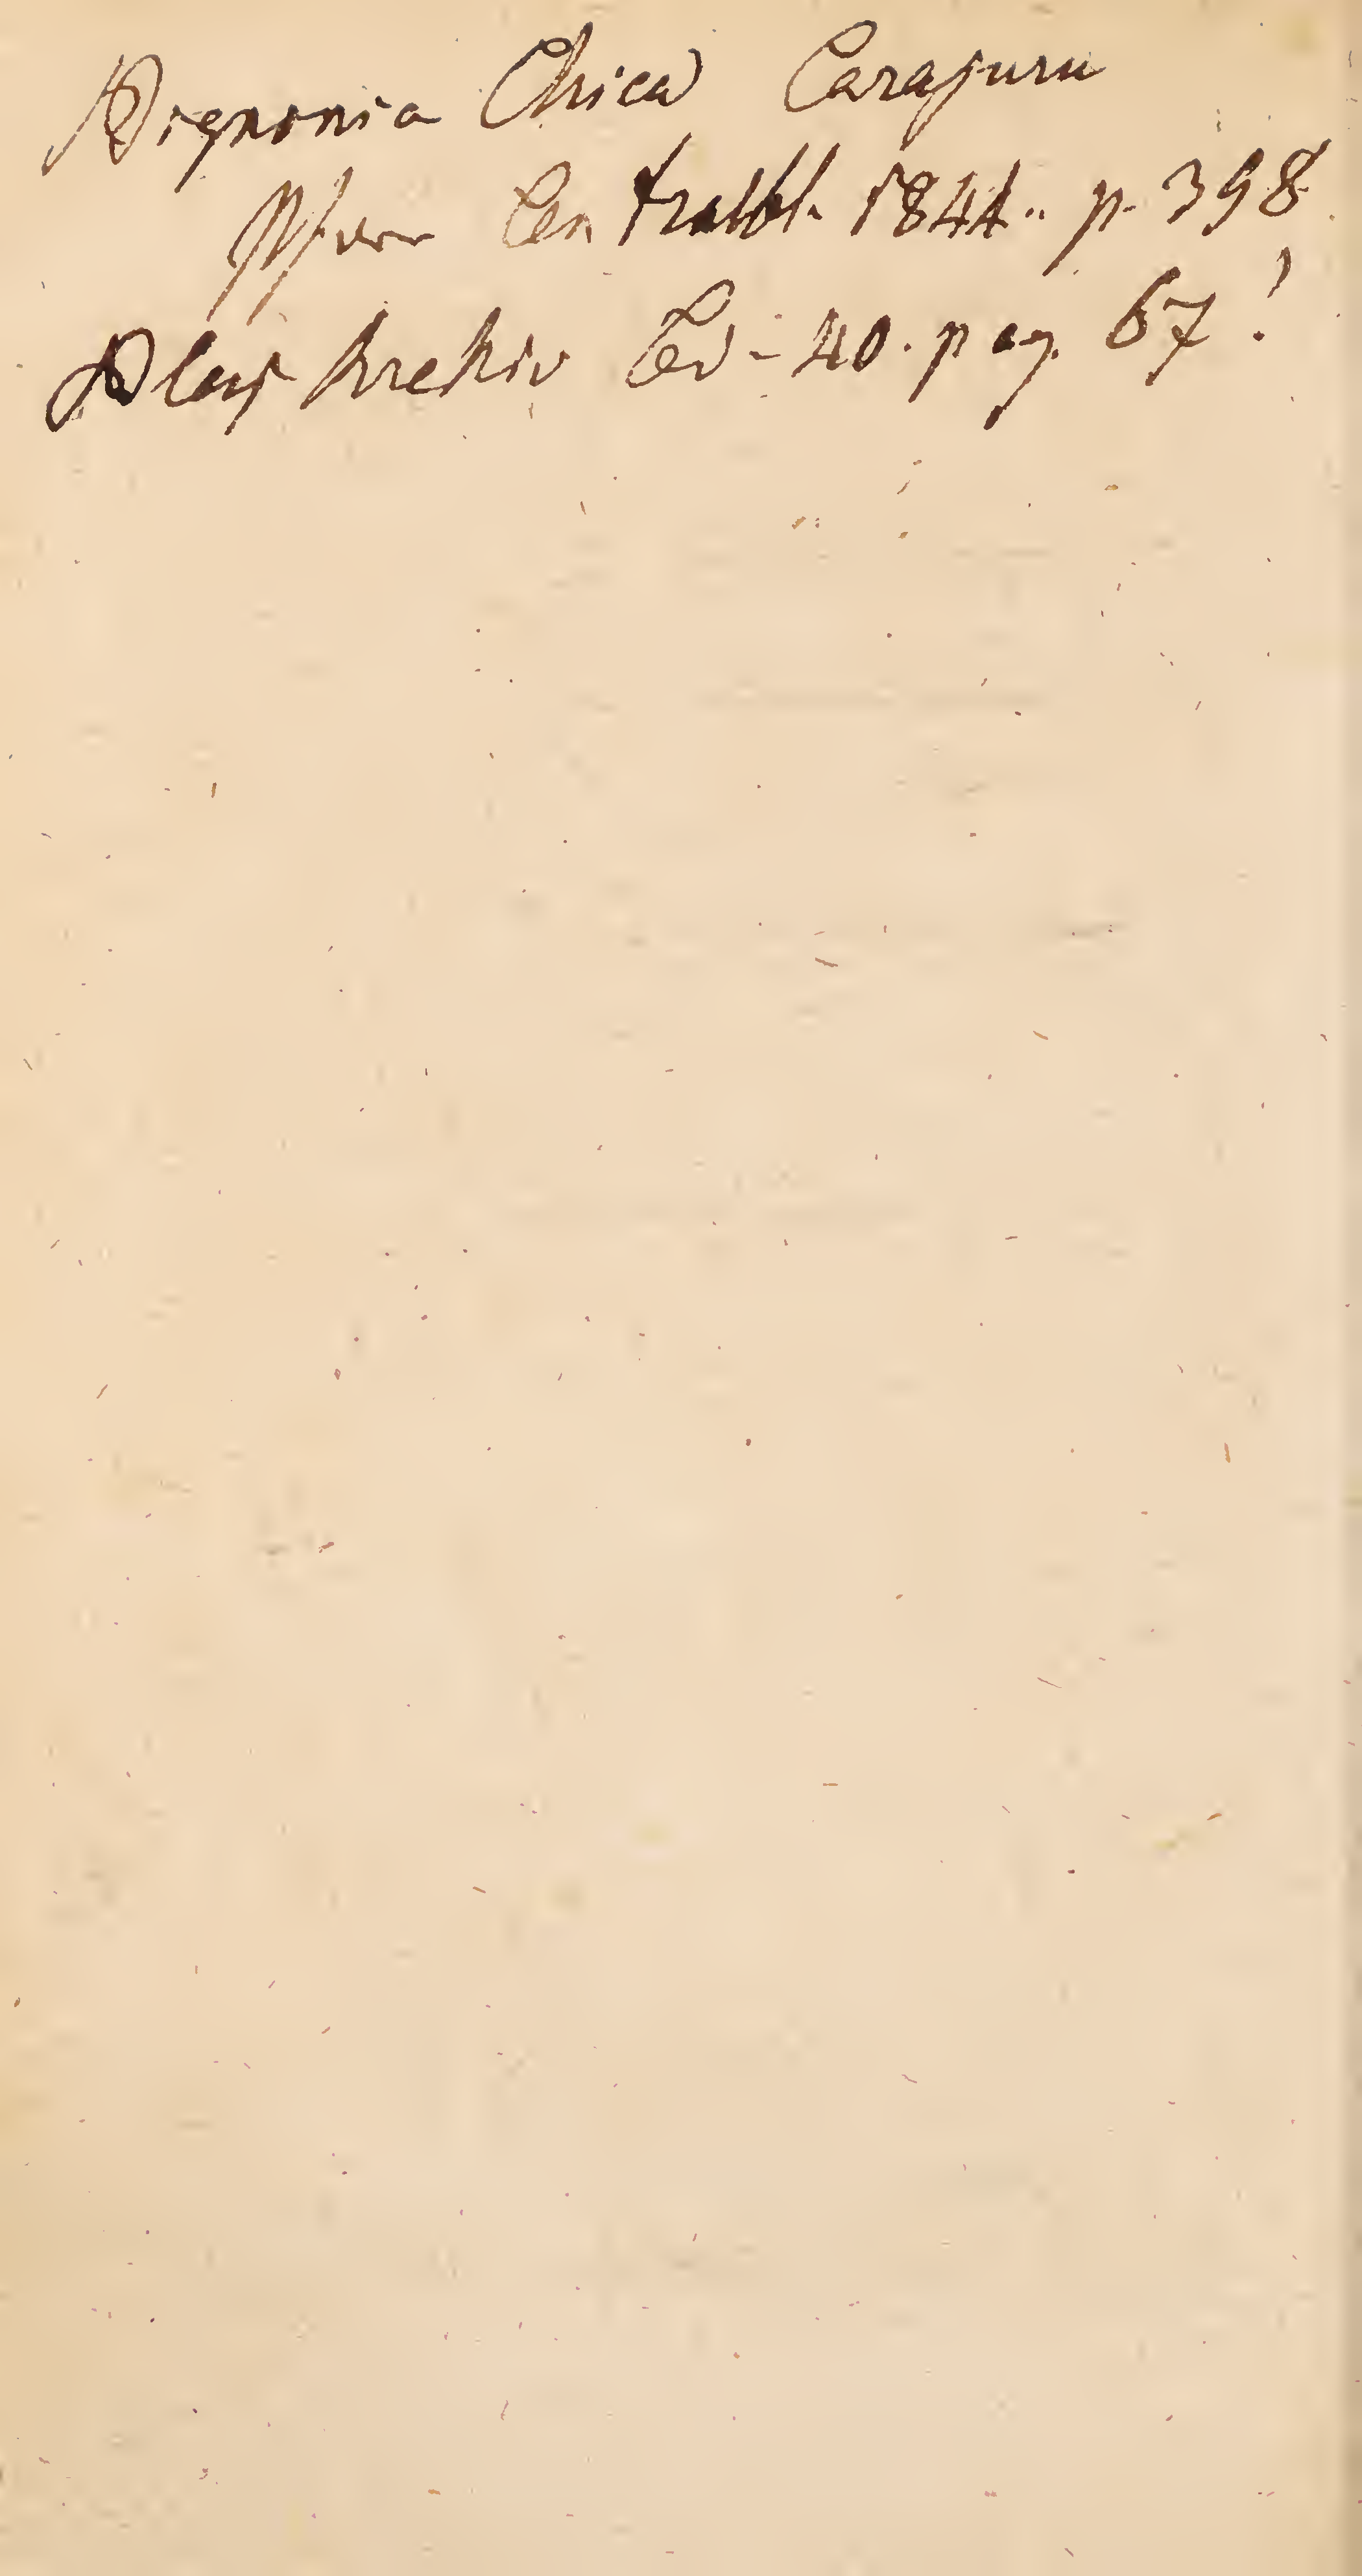 Bignonia Chica Carajuru
Centralbl. 1844. p. 398.
Archiv Bd. 40. pag. 67!